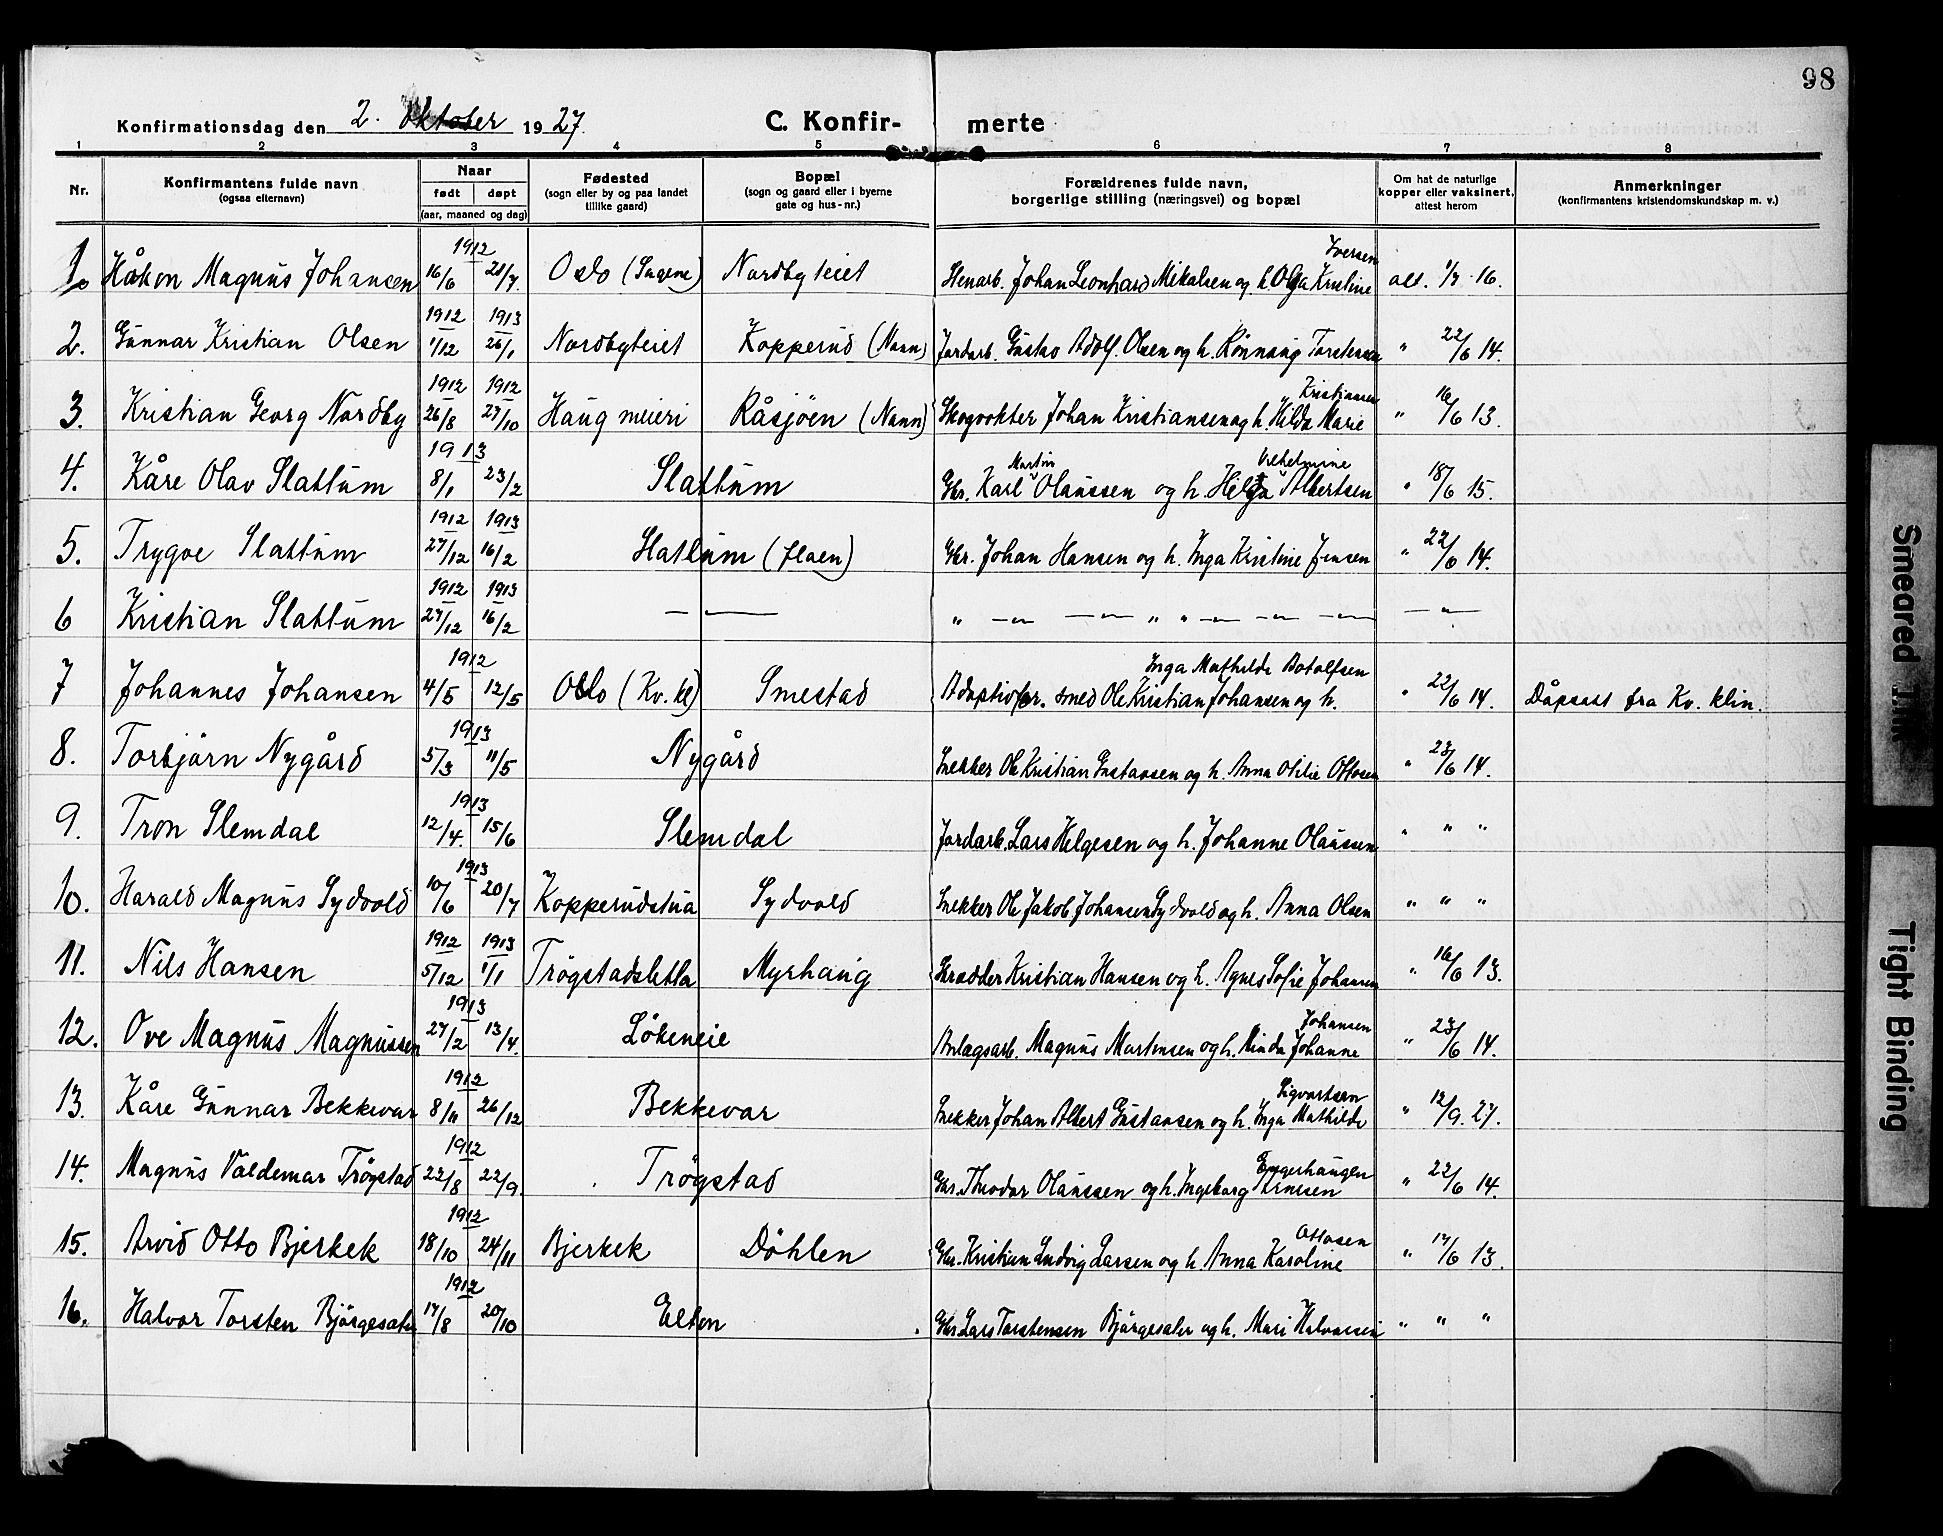 98
Konfirmationsdag den 2. Oktober 1927. C. Konfir- merte
1 2 3 4 5 6 7 8
Nr. Konfirmantens fulde navn (ogsaa efternavn) Naar født døpt (aar, maaned og dag) Fødested (sogn eller by og paa landet tillike gaard) Bopæl (sogn og gaard eller i byerne gate og hus-nr.) Forældrenes fulde navn, borgerlige stilling (næringsvei) og bopæl Om hat de naturlige kopper eller vaksinert, attest herom Anmerkninger (konfirmantens kristendomskundskap m. v.)
1912 Iversen
1. Håkon Magnus Johansen 16/6 21/7. Oslo (Sagene) Nordbyteiet Stenarb. Johan Leonhard Mikalsen og h. Olga Kristine att. 1/7 16.
1912 1913
2. Gunnar Kristian Olsen 1/12 26/1 Nordbyteiet Kopperud (Nann) Jordarb. Gustav Adolf Olsen og h. Rönnaug Torstensen " 22/6 14.
1912 1912 Kristiansen
3. Kristian Georg Nordby 26/8 27/10 Haug meieri Råsjöen (Nann) Skogvokter Johan Kristiansen og h. Hilda Marie " 16/6 13.
1913 Martin Vilhelmine
4. Kåre Olav Slattum 8/1 23/2 Slattum Gbr. Karl Olaussen og h. Helga Albertsen " 18/6 15.
1912 1913
5. Trygve Slattum 27/12 16/2 Slattum (flaen) Gbr. Johan Hansen og h. Inga Kristine Jensen " 22/6 14.
1912 1913
6 Kristian Slattum 27/12 16/2 — " — " —"— —"— " " —"— —"— —"— — " —
1912 Inga Mathilde Botolfsen
7 Johannes Johansen 4/5 12/5 Oslo (Kv. kl) Smestad Adoptivfor. smed Ole Kristian Johansen og h. " 22/6 14. Dåpsatt fra Kv. klin.
1913
8. Torbjörn Nygård 5/3 11/5 Nygård Snekker Ole Kristian Gustavsen og h. Anna Otilie Ottosen " 23/6 14.
1913
9. Tron Slemdal 12/4. 15/6 Slemdal Jordarb. Lars Helgesen og h. Johanne Olaussen " " "
1913
10. Harald Magnus Sydvold 10/6 20/7 Kopperudstua Sydvold Snekker Ole Jakob Johansen Sydvold og h. Anna Olsen " " "
1912 1913
11. Nils Hansen 5/12 1/1 Trögstadsletta Myrhaug Skrædder Kristian Hansen og h. Agnes Sofie Johansen " 16/6 13.
1913 Johansen
12. Ove Magnus Magnussen 27/2 13/4. Lökeneie Anlægsarb. Magnus Martinsen og h. Minda Johanne " 23/6 14.
1912 Sigvartsen
13. Kåre Gunnar Bekkevar 8/11 26/12 Bekkevar Snekker Johan Albert Gustavsen og h. Inga Mathilde " 12/9. 27.
1912 Engerhaugen
14. Magnus Valdemar Trögstad 22/8 22/9. Trögstad Gbr. Theodor Olaussen og h. Ingeborg Arnesen " 22/6 14.
1912 Ottosen
15. Arvid Otto Bjerkek 18/10 24/11 Bjerkek Döhlen Gbr. Kristian Ludvig Larsen og h. Anna Karoline " 17/6 13.
1912
16. Halvor Torsten Björgesæter 17/8 20/10 Elton Gbr. Lars Torstensen Björgesæter og h. Mari Halvorsen " " "
Smeared Ink
Tight Binding